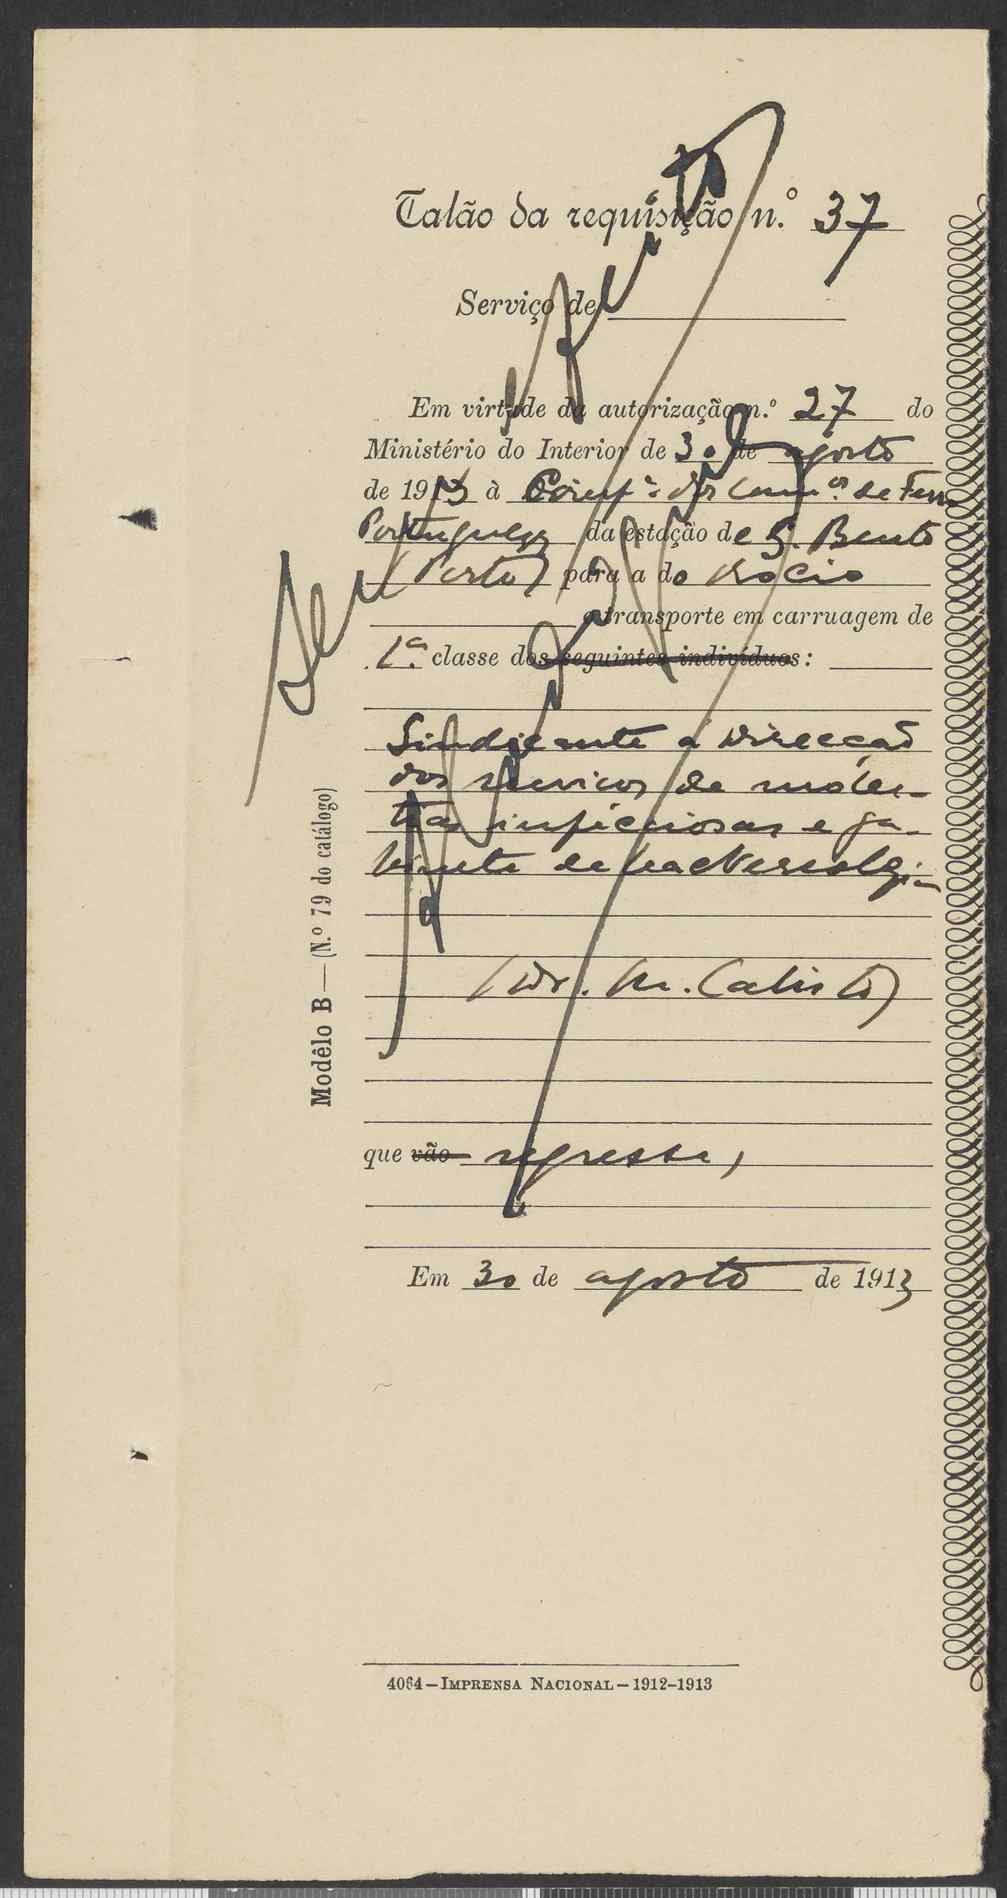 Talão da requisição n.º 37
Serviço de
Em virtude da autorização n.º 27 do
Ministério do Interior de 30 de agosto
de 1913 à Comp.ª dos Cam.os de Ferro
Portugueza da estação de S. Bento
(Porto) para a do Rocio
o transporte em carruagem de
1.ª classe dos seguintes indivíduos:
Sindicante á Direcção
dos serviços de moles-
tias infeciosas e ga-
binete de bacteriologia
(Dr. M. Calisto)
que vão regressa,
Em 30 de agosto de 1913
Modêlo B — (N.º 79 do catálogo)
4064 — Imprensa Nacional — 1912-1913